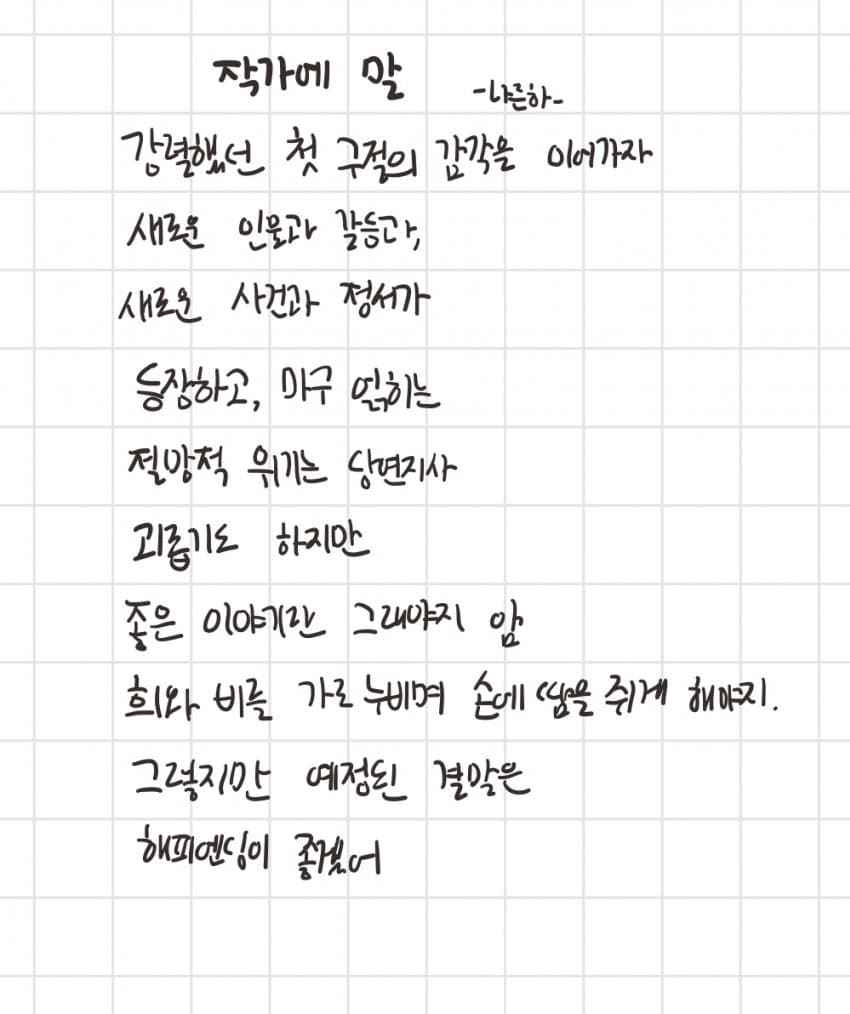 작가에 말
-나른하-
강렬했던 첫 구절의 감각을 이어가자
새로운 인물과 갈등과,
새로운 사건과 정서가
등장하고, 마구 얽히는
절망적 위기는 당연지사
괴롭기도 하지만
좋은 이야기란 그래야지 암
희와 비를 가로 누비며 손에 땀을 쥐게 해야지.
그렇지만 예정된 결말은
해피엔딩이 좋겠어